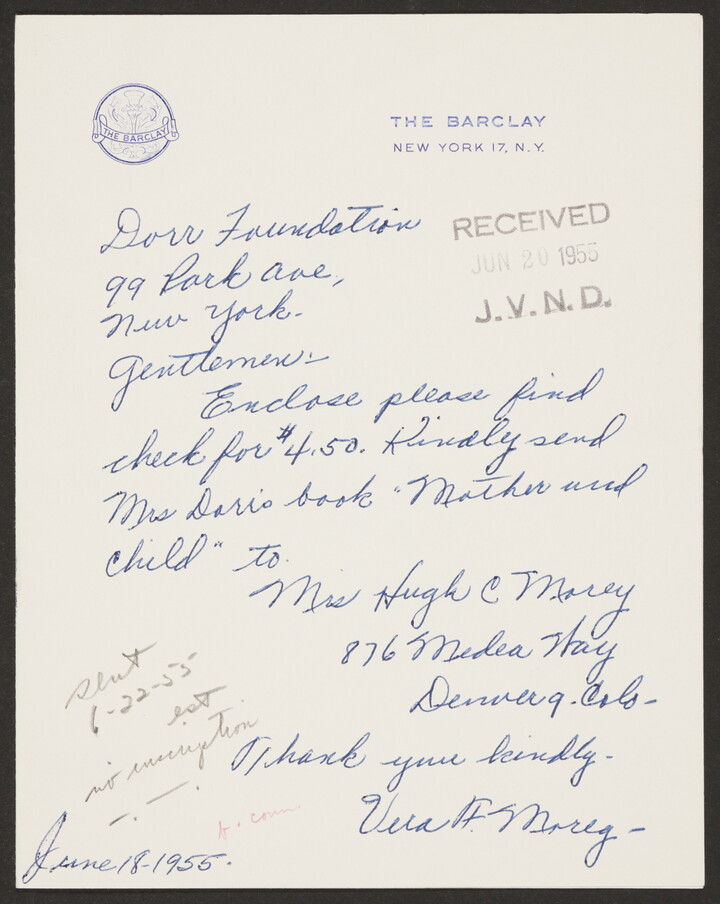 THE BARCLAY
THE BARCLAY
NEW YORK 17, N.Y.
RECEIVED
JUN 20 1955
J.V.N.D.
Dorr Foundation
99 Park Ave,
New York.
Gentlemen:-
Enclose please find
check for $4.50. Kindly send
Mrs Dorrs book "Mother and
Child" to
Mrs Hugh C Morey
876 Medea Way
Denver 9. Colo-
Thank you kindly-
Vera H. Morey-
sent
6-22-55
est
no inscription
June 18-1955.